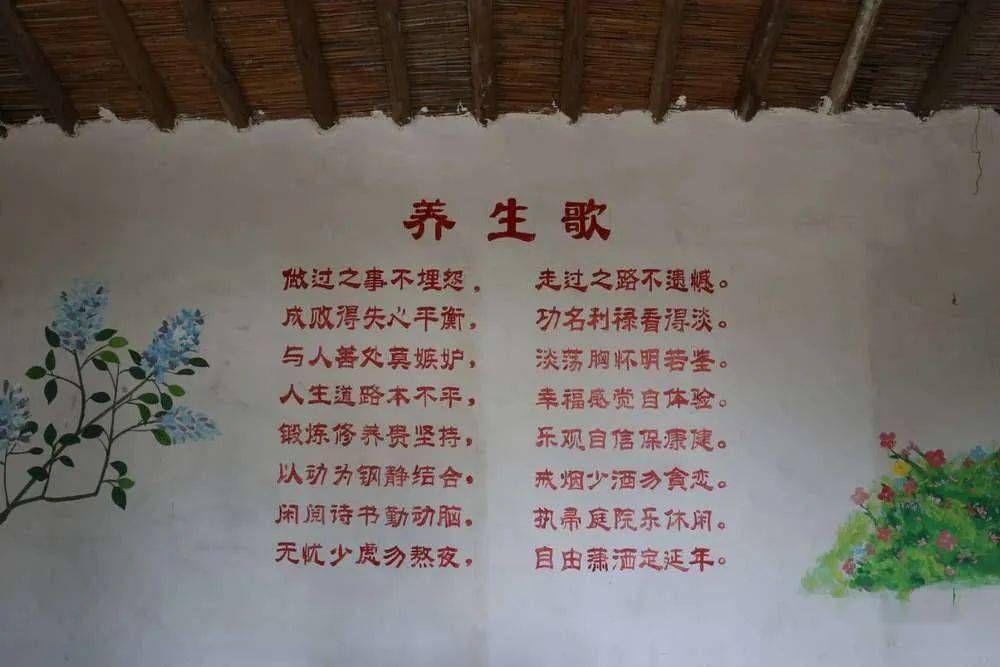 养生歌
做过之事不埋怨，走过之路不遗憾。
成败得失心平衡，功名利禄看得淡。
与人善处莫嫉妒，淡荡胸怀明若鉴。
人生道路本不平，幸福感觉自体验。
锻炼修养贵坚持，乐观自信保康健。
以动为钢静结合，戒烟少洒勿貪恋。
闲阅诗书勤动脑，执帚庭院乐休闲。
无忧少虑勿熬夜，自由潇洒定延年。